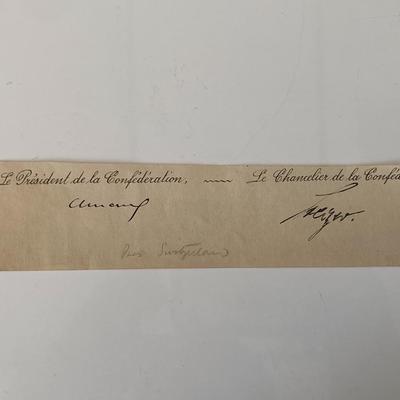 Le Président de la Confédération, Le Chancelier de la Conféd
Pres Switzerland